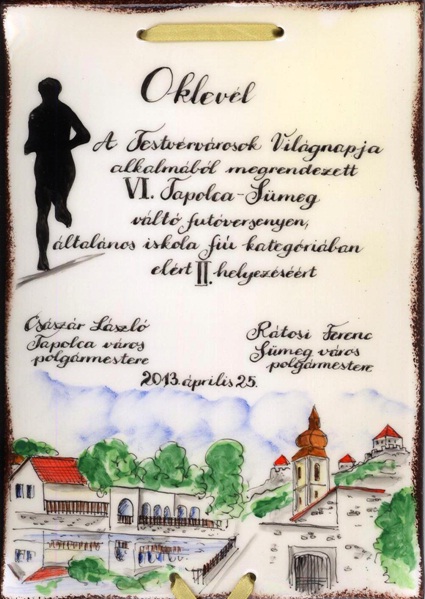 Oklevél
A Testvérvárosok Világnapja
alkalmából megrendezett
VI. Tapolca-Sümeg
váltó futóversenyen,
általános iskola fiú kategóriában
elért II. helyezéséért
Császár László
Tapolca város
polgármestere
Rátosi Ferenc
Sümeg város
polgármestere
2013. április 25.